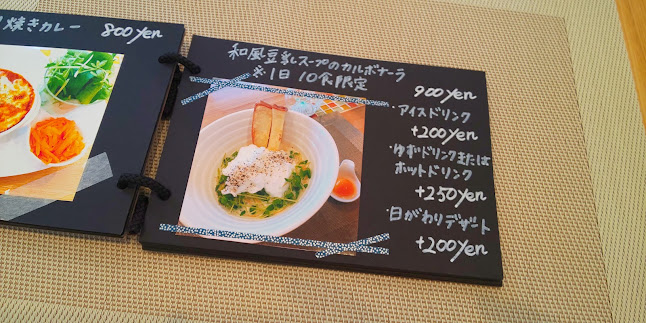 焼きカレー 800yen
和風豆乳スープのカルボナーラ
※1日 10食限定
900yen
・アイスドリンク
+200yen
・ゆずドリンクまたは
ホットドリンク
+250yen
・日がわりデザート
+200yen